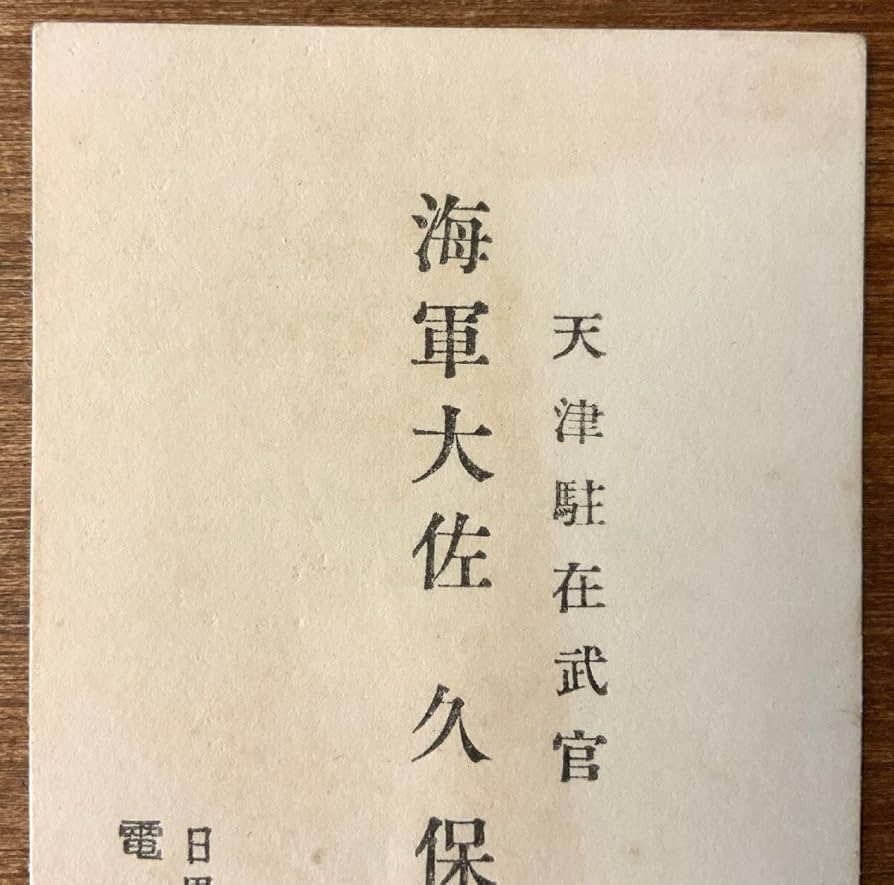 天津駐在武官
海軍大佐 久保
日
電